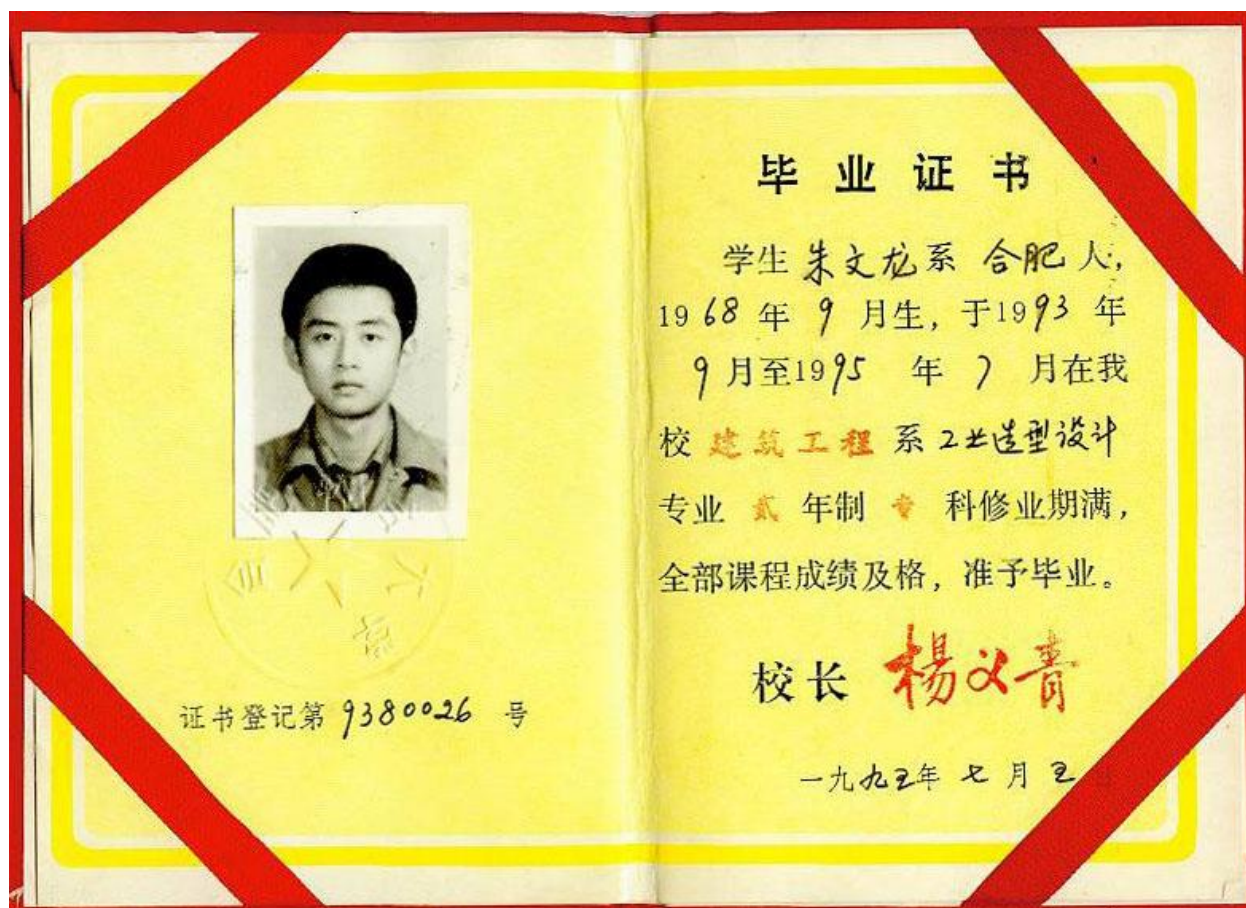 证书登记第 9380026 号
毕业证书
学生 朱文龙 系 合肥 人，
1968 年 9 月生，于1993 年
9 月至1995 年 7 月在我
校 建筑工程 系 工业造型设计
专业 贰 年制 专 科修业期满，
全部课程成绩及格，准予毕业。
校长 杨义青
一九九五年 七 月 五 日